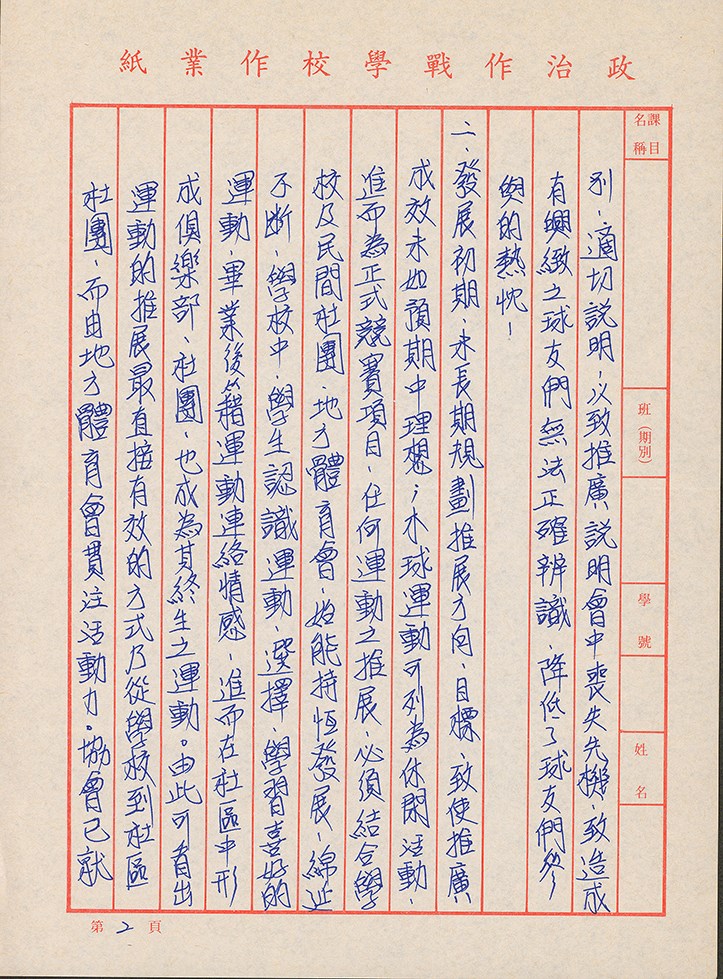 政治作戰學校作業紙
課目名稱
班(期別)
學號
姓名
別,適切說明,以致推廣說明會中喪失先機,致造成
有興緻之球友們無法正確辨識,降低了球友們參
與的熱忱!
二、發展初期、未長期規劃推展方向、目標、致使推廣
成效未如預期中理想;木球運動可列為休閑活動、
進而為正式競賽項目、任何運動之推展、必須結合學
校及民間社團、地方體育會、始能持恆發展、綿延
不斷、學校中、學生認識運動、選擇、學習喜好的
運動、畢業後藉運動連絡情感、進而在社區中形
成俱樂部、社團、也成為其終生之運動。由此可看出
運動的推展最直接有效的方式乃從學校到社區
社團、而由地方體育會貫注活動力。協會已就
第2頁